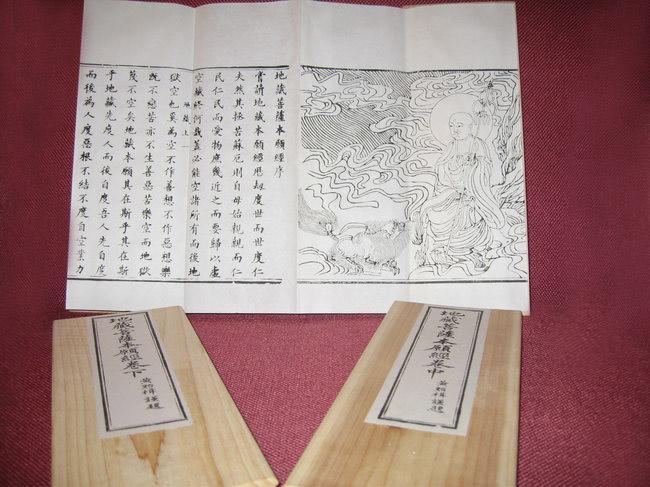 地藏菩薩本願經序
嘗請地藏本願經歷劫度世而世度仁
夫然其拯苦蘇厄則自母始親親而仁
民仁民而愛物庶幾近之而要歸以虛
空藏終何哉蓋必能空諸所有而後地
地藏上 一
獄空也奚為空不作善想不作惡想樂
既不戀苦亦不生善惡苦樂空而地獄
莫不空矣地藏本願其在斯乎其在斯
乎地藏先度人而後自度吾人先自度
而後為人度惡根不結不度自空業力
地藏菩薩本願經卷中
地藏菩薩本願經卷下